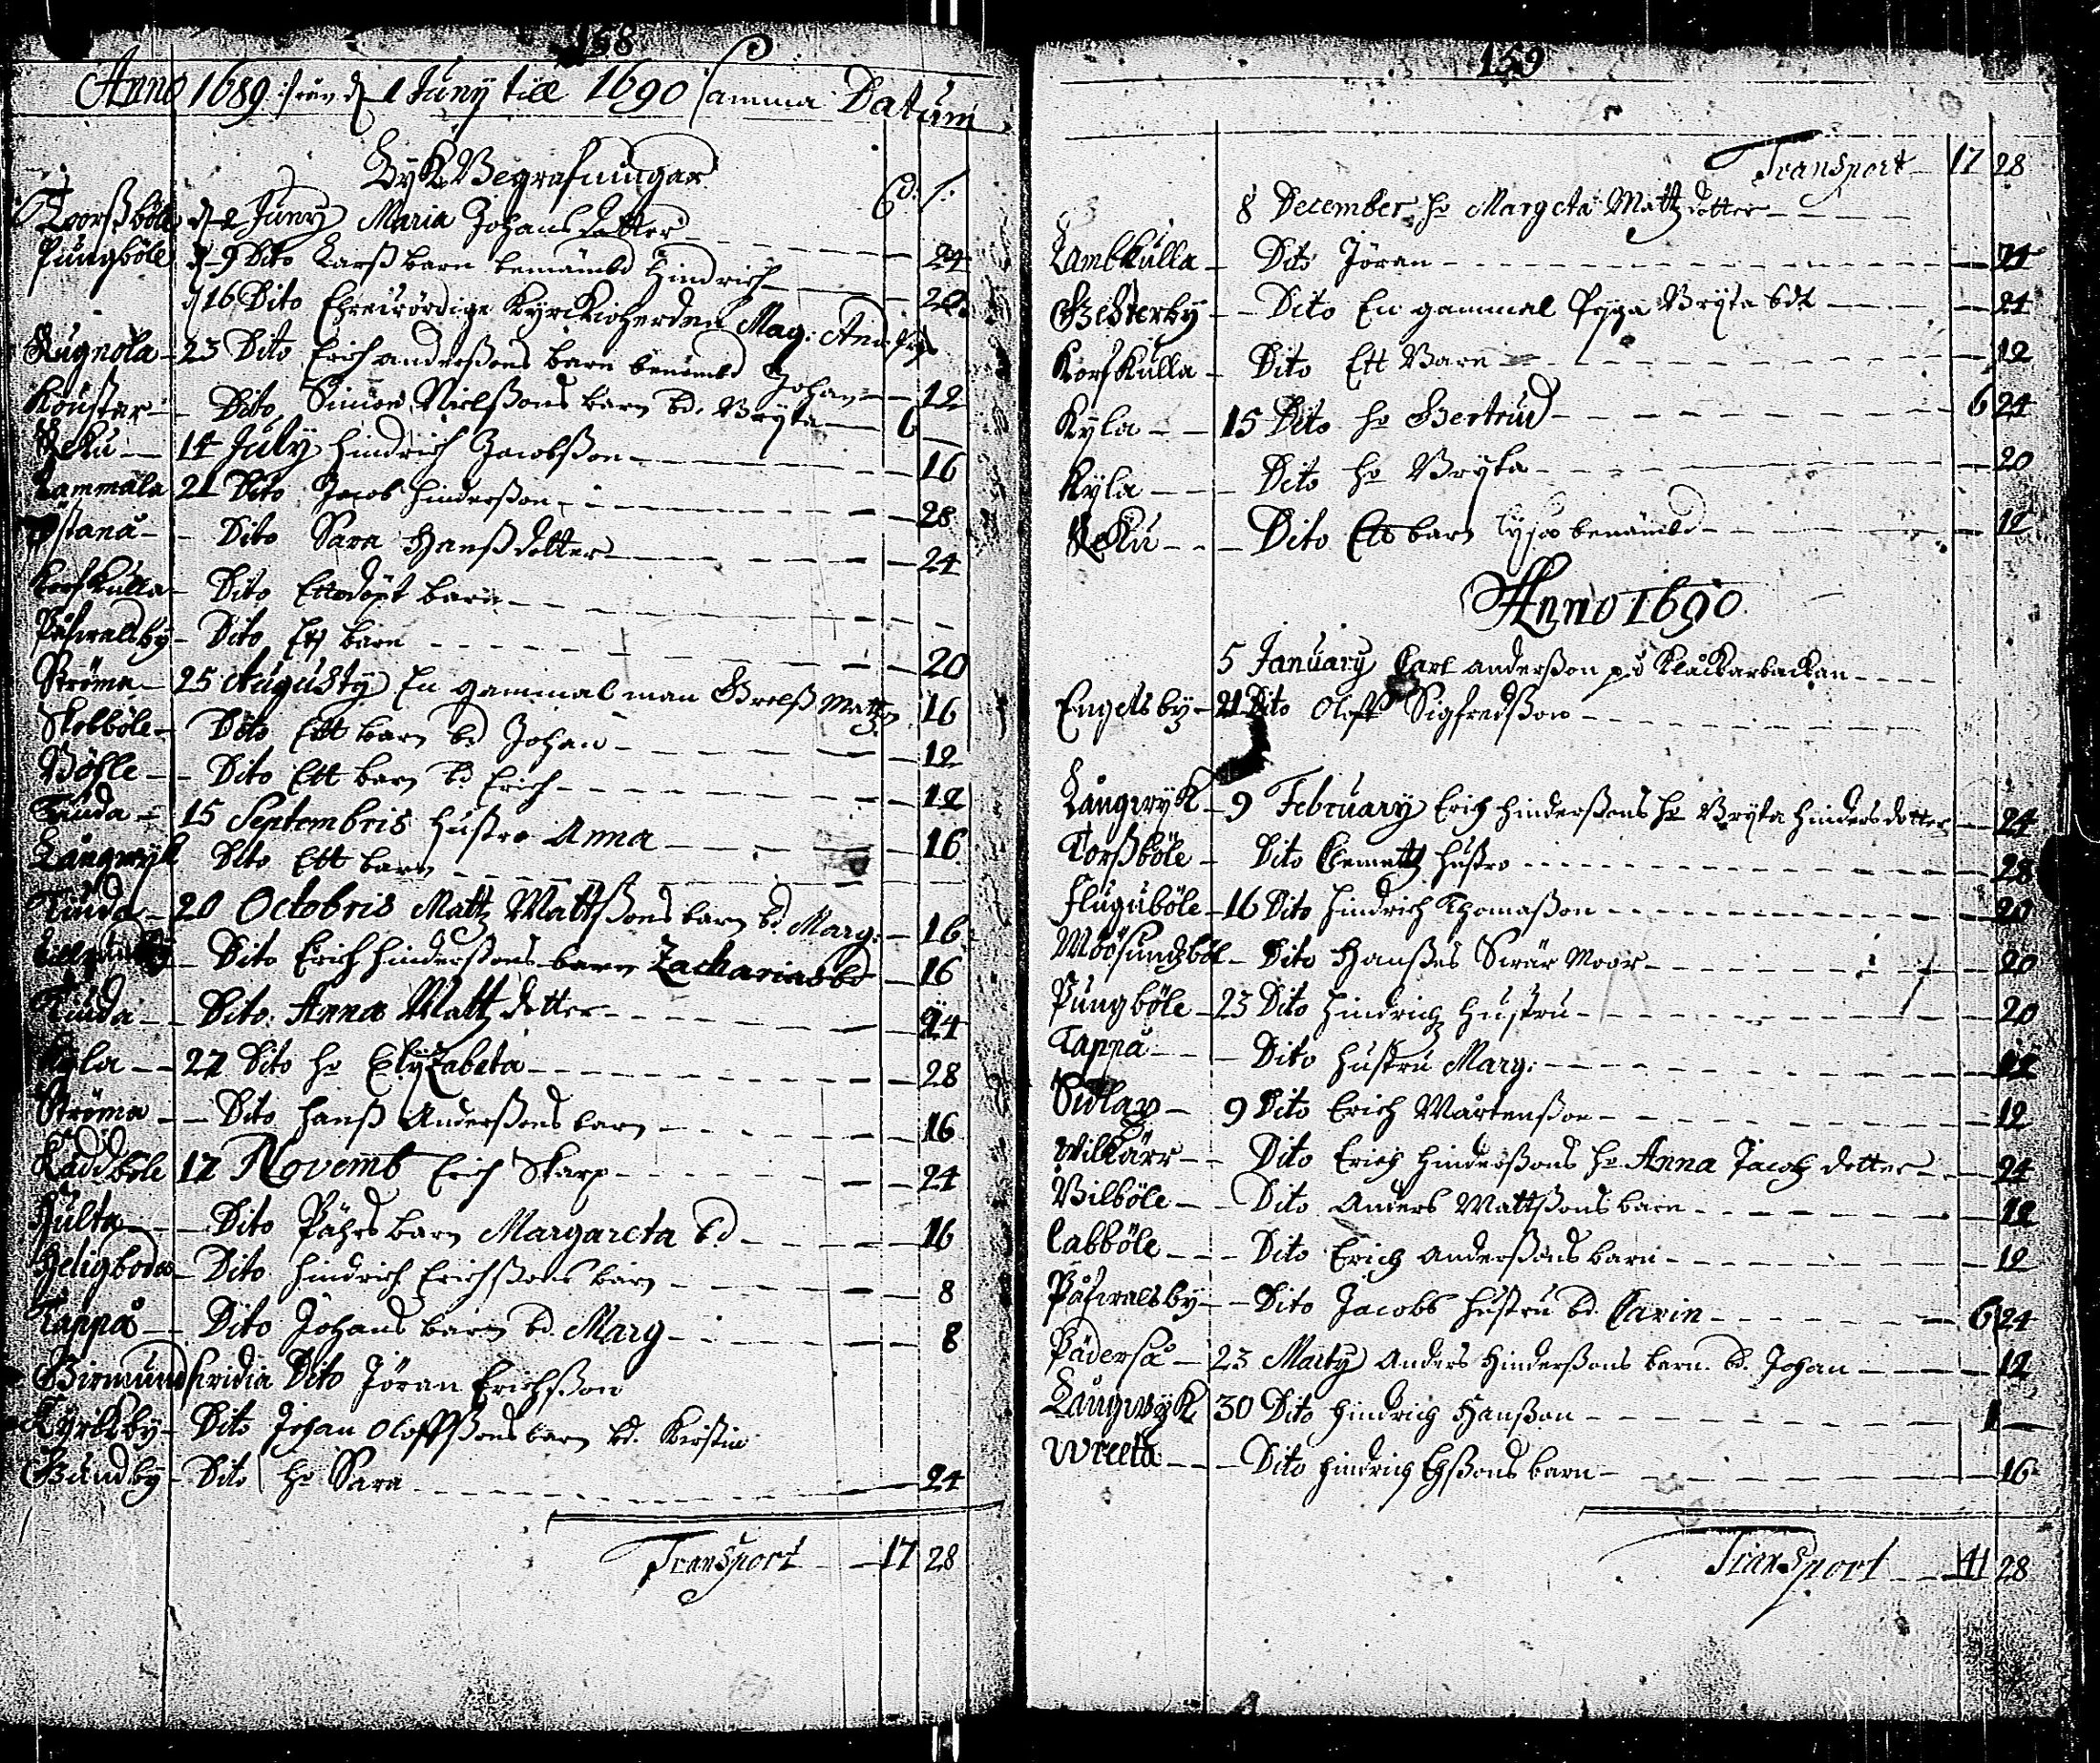 158
Anno 1689 från d 1 Juny till 1690 samma Datum
Lyk Begrafningar
Torßböle d 2 Juny Maria Johansdotter - 24
Pungböle d 9 Dito Larß barn benämbd Hindrich - 20
d 16 Dito Ehrewördige Kyrckioherden Mag: And:
Rugnola - 23 Dito Erich anderßons barn benämbd Johan - 12
Dito Simon Nielßons barn bd. Bryta - 6 -
14 July Hindrich Jacobßon - 16
Lammala 21 Dito Jacob Hinderßon - 28
Östanå - Dito Sara Hanßdotter - 24
Korskulla - Dito Ett odöpt barn -
Påfwalsby - Dito Ett barn - 20
Ströma - 25 Augusty En gammal man Grelß Mattz - 16
Skobböle - Dito Ett barn bd Johan - 12
Böhle - Dito Ett barn bd Erich - 12
Finda - 15 Septembris Hustro Anna - 16
Långwyk Dito Ett barn -
20 Octobris Mattz Mattßons barn bd. Marg: - 16
Dito Erich Hinderßons barn Zacharias bd - 16
Dito Anna Mattzdotter - 24
Kyla - 27 Dito ho Elyzabeta - 28
Ströma - Dito Hanß Anderßons barn - 16
Laddböle 17 Novemb Erich Skarp - 24
Hulta - Dito Pährs barn Margareta bd - 16
Helgboda - Dito Hindrich Erichßons barn - 8
Tappå - Dito Johans barn bd. Marg - 8
Dito Jöran Erichßon
Kyrkby - Dito Johan Oloffßons barn bd. Kirstin
Gundby - Dito ho Sara - 24
Transport - 17 28
159
Transport - 17 28
8 December ho Margeta Mattzdotter -
Lambkulla - Dito Jöran - 24
Gesterby - Dito En gammal Pyga Bryta bdt - 24
Korskulla - Dito Ett Barn - 12
Kyla - 15 Dito ho Gertrud - 6 24
Kyla - Dito ho Bryta - 20
Dito Ett barn Lysa benämbd - 12
Anno 1690
5 January Carl anderßon på Klåckarbackan -
Engelsby - 21 Dito Oloff Sigfredßon -
Långwyk - 9 February Erich Hinderßons ho Bryta Hindersdotter - 24
Torßböle - Dito Clemettz Hustro - 28
Fluguböle - 16 Dito Hindrich Thomaßon - 20
Moösundzböl - Dito Hanßes Swär Moor - 20
Pungböle - 23 Dito Hindrichz Hustru - 20
Tappå - Dito Hustru Marg: - 12
Sidlax - 9 Dito Erich Mårtenßon - 12
Wilkärr - Dito Erich Hinderßons ho Anna Jacobz dotter - 24
Bilböle - Dito Anders Mattßons barn - 12
Labböle - Dito Erich Anderßons barn - 12
Påfwalsby - Dito Jacobs Hustru bd. Carin - 6 24
Päderså - 23 Marty Anders Hinderßons barn bd. Johan - 12
Långwyk 30 Dito Hindrich Hanßon - 1 -
Wreeta - Dito Hindrich Ehßons barn - 16
Transport - 41 28